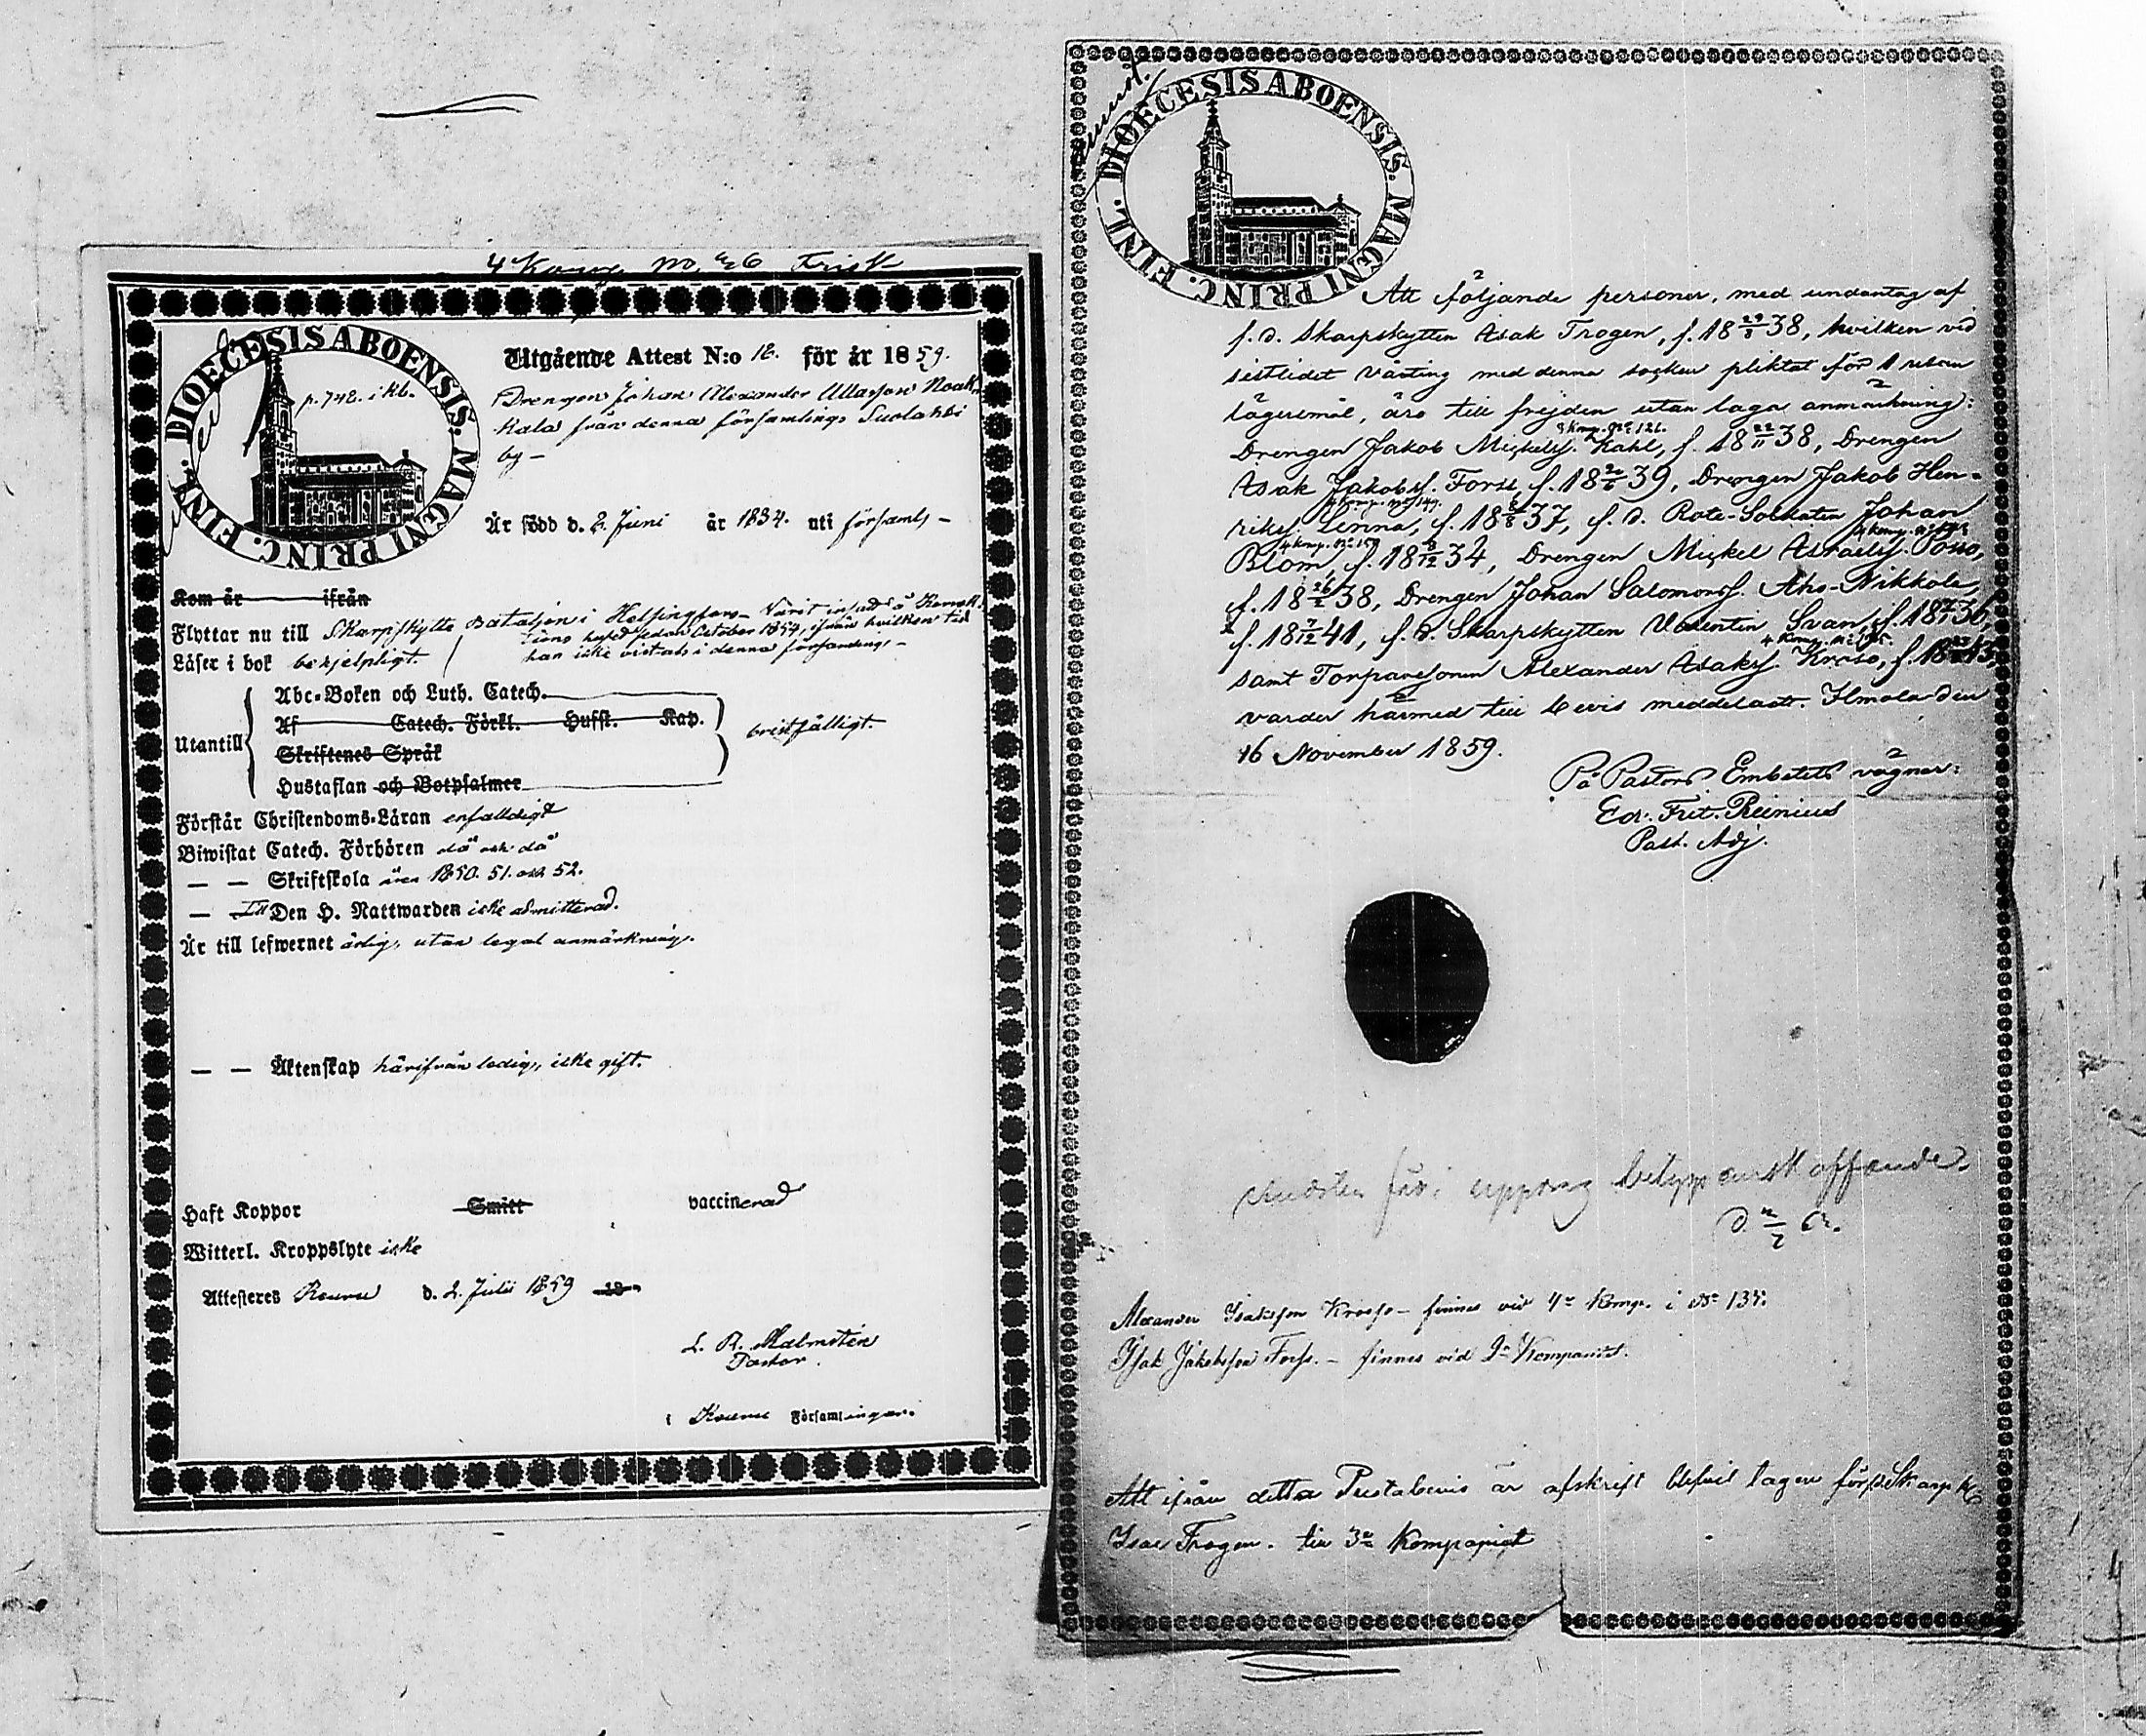 4 Komp. No. 226 Frisk
DIOECESIS ABOENSIS. MAGNI PRINC. FINL.
p. 742. i kb.
Utgående Attest N:o 12. för år 1859.
Drengen Johan Alexander Ullasson Noak-
kala från denna församlings Suolahti
by —
Är född d. 2. Juni år 1834. uti församl, —
Kom år ifrån
Flyttar nu till Skarpskytte Bataljon i Helsingfors — Varit införd å
sedan October 1854, ifrån hvilken tid
Läser i bok behjelpligt. han icke vistats i denna församling, —
Utantill
Abc-Boken och Luth. Catech.
Af Catech. Förkl. Husst. Kap.
bristfälligt.
Skriftenes Språk
Hustaflan och Botpsalmer
Förstår Christendoms-Läran enfalldigt
Biwistat Catech. Förhören då och då
— — Skriftskola åren 1850. 51. och 52.
— Till Den H. Nattwarden icke admitterad.
Är till lefwernet ärlig, utan legal anmärkning.
— — Äktenskap härifrån ledig, icke gift.
Haft Koppor Smitt vaccinerad
Witterl. Kroppslyte icke
Attesteres Kuru d. 2. Julii 1859 18
L. R. Malmstén
Pastor.
i Kuru Församlingar.
DIOECESIS ABOENSIS. MAGNI PRINC. FINL.
Att följande personer, med undantag af
f. d. Skarpskytten Isak Trogen, f. 18 29/8 38, hvilken vid
sistlidet Vårting med denna socken pliktat för 1 resan
lägersmål, äro till frejden utan laga anmärkning:
Komp. No 126.
Drengen Jakob Mickelss. Kahl, f. 18 22/11 38, Drengen
Isak Jakobss. Forss, f. 18 39, Drengen Jakob Hen-
4 Komp. No 149.
rikss. Lerina, f. 18 37, f. d. Rote-Soldaten Johan
4 Komp. No 159 4 Komp. No
Blom, f. 18 34, Drengen Mickel Israelss. Posso,
f. 18 26/2 38, Drengen Johan Salomonss. Aho-Nikkola,
f. 18 7/12 41, f. d. Skarpskytten Valentin Svan, f. 18 36,
4 Komp. No 135.
samt Torparesonen Alexander Isakss. Kroso, f. 18
varder härmed till bevis meddeladt. Ilmola den
16 November 1859.
På Pastors Embetets vägnar:
Edv. Frit. Reinius
Past. Adj.
Alexander Isaksson Kroso — finnes vid 4de Komp. i No 135.
Isak Jakobsson Forss. — finnes vid 2dra Kompaniet.
Att ifrån detta Prestabevis är afskrift blifvit tagen för f.d. Skarpsk.
Isac Trogen. till 3dje Kompaniet